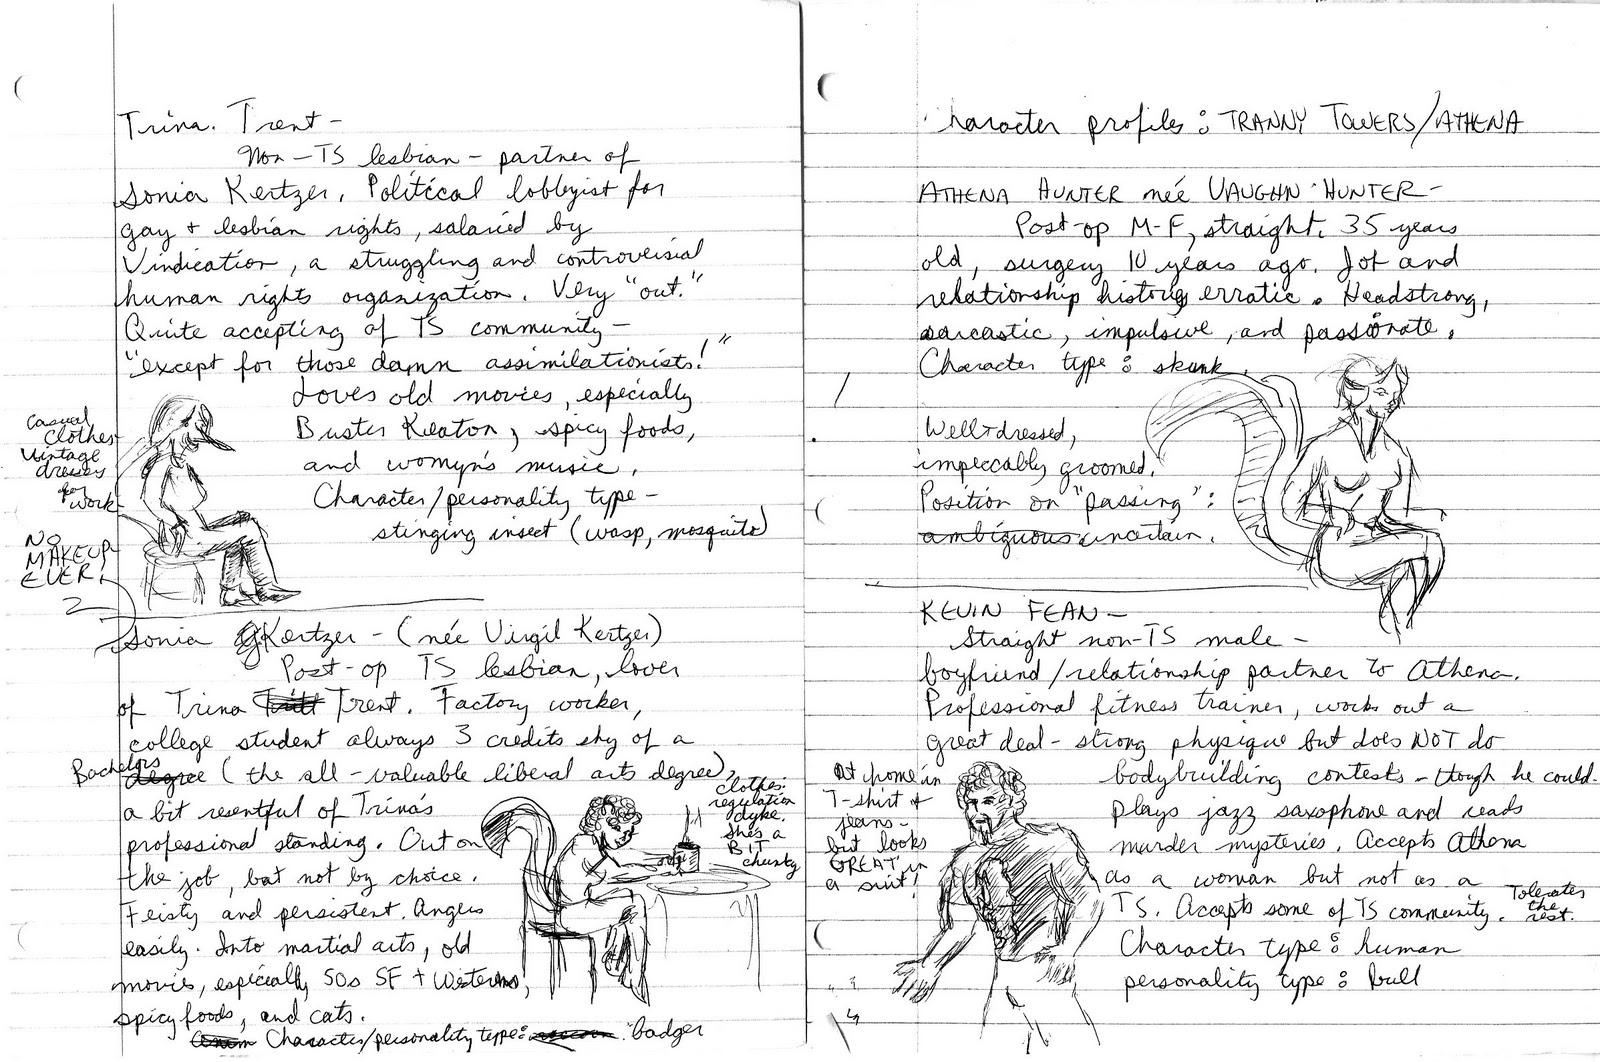 Trina. Trent –
Non-TS lesbian – partner of
Sonia Kertzer. Political lobbyist for
gay + lesbian rights, salaried by
Vindication, a struggling and controversial
human rights organization. Very "out."
Quite accepting of TS community –
"except for those damn assimilationists!"
Loves old movies, especially
Buster Keaton, spicy foods,
and womyn's music.
Character/personality type –
stinging insect (wasp, mosquito)
Casual
clothes
Vintage
dresses
for
work
NO
MAKEUP
EVER!
2
Sonia Kertzer – (née Virgil Kertzer)
Post-op TS lesbian, lover
of Trina Trent. Factory worker,
college student always 3 credits shy of a
Bachelors degree (the all-valuable liberal arts degree),
a bit resentful of Trina's
professional standing. Out on
the job, but not by choice.
Feisty and persistent. Angers
easily. Into martial arts, old
movies, especially 50s SF + Westerns,
spicy foods, and cats.
Character/personality type: badger
clothes:
regulation
dyke.
She's a
BIT
chunky
Character profiles: TRANNY TOWERS/ATHENA
ATHENA HUNTER née VAUGHN HUNTER –
Post-op M-F, straight. 35 years
old, surgery 10 years ago. Job and
relationship history erratic. Headstrong,
sarcastic, impulsive, and passionate.
Character type: skunk.
1
Well-dressed,
impeccably groomed.
Position on "passing":
ambiguous uncertain.
KEVIN FEAN –
Straight non-TS male –
boyfriend/relationship partner to Athena.
Professional fitness trainer, works out a
great deal – strong physique but does NOT do
bodybuilding contests – though he could.
plays jazz saxophone and reads
murder mysteries. Accepts Athena
as a woman but not as a
TS. Accepts some of TS community. Tolerates
the
rest.
Character type: human
personality type: bull
At home in
T-shirt +
jeans –
but looks
GREAT in
a suit!